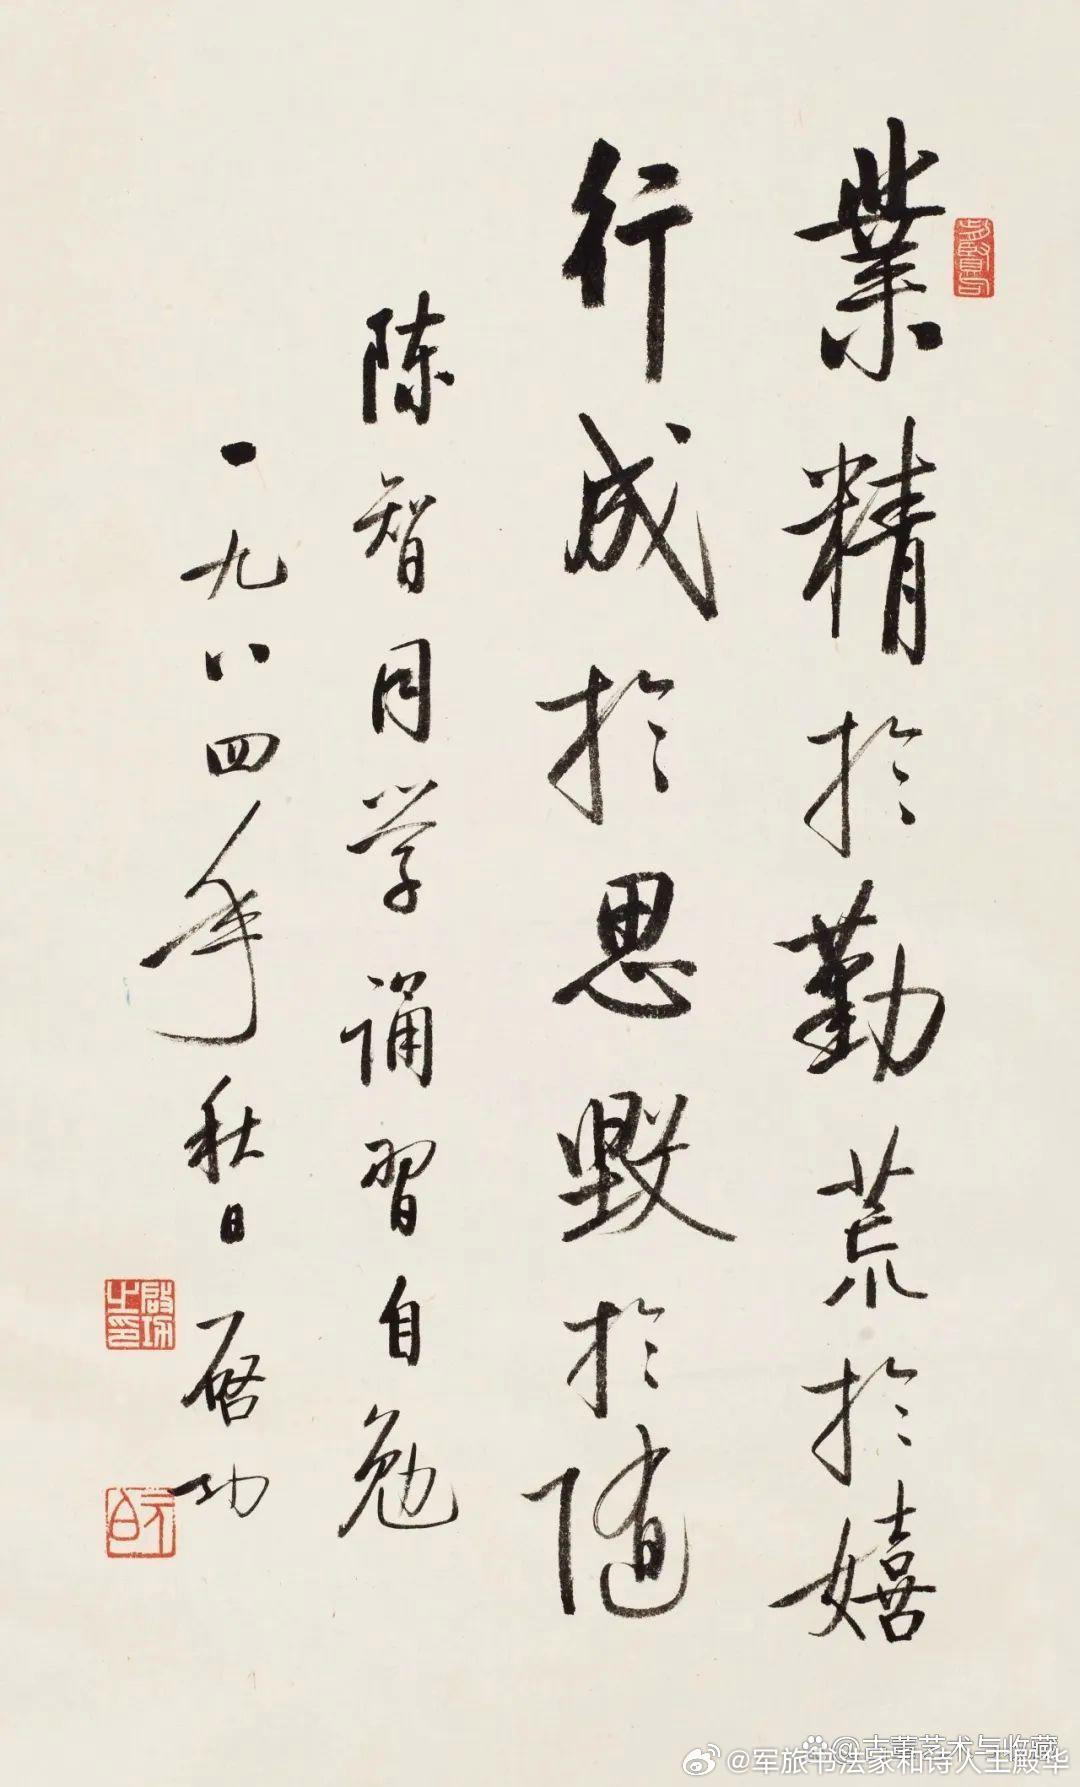 業精於勤荒於嬉
行成於思毀於随
陈智同学誦習自勉
一九八四年秋日 启功
启功之印
元白
@古董艺术与收藏
@军旅书法家和诗人王殿华